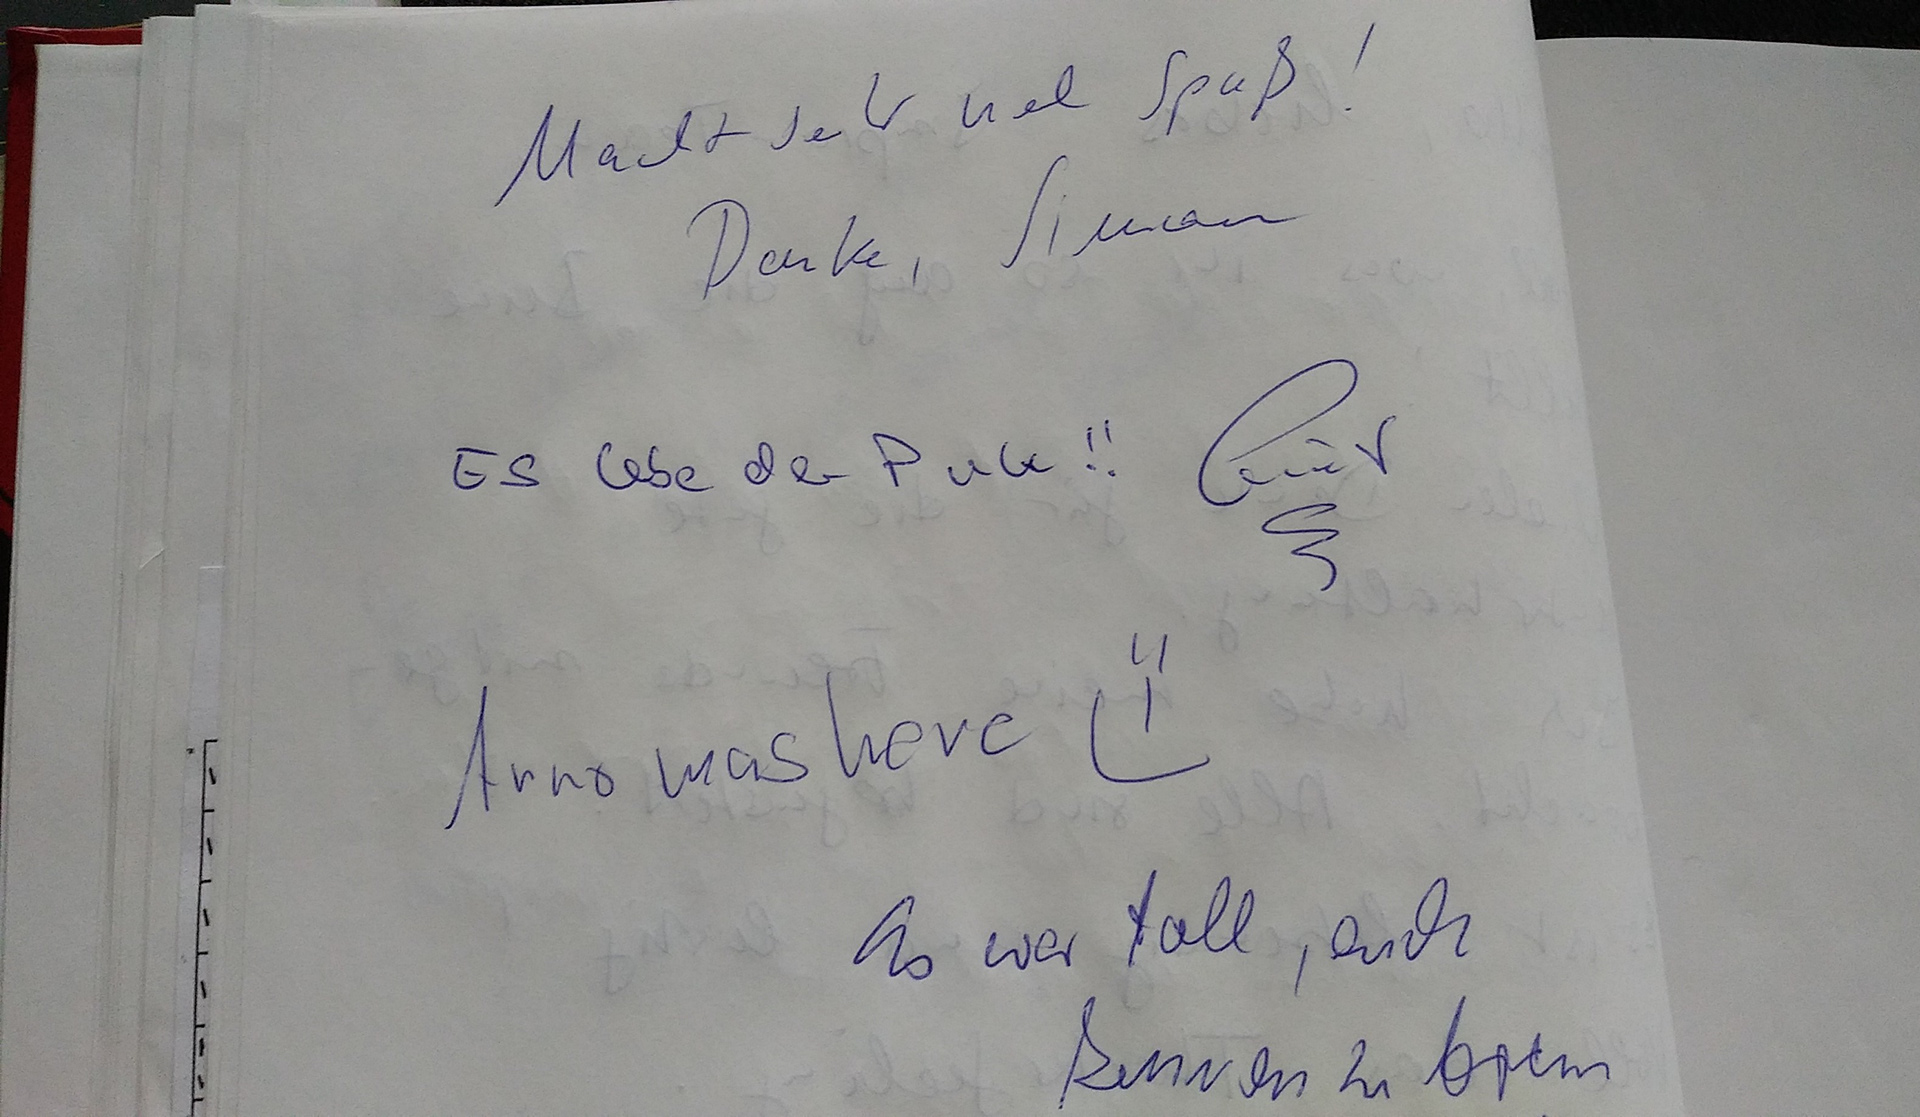 Macht sehr viel Spaß!
Danke, Simon
Es lebe der Punk!!
Arno was here
Es war toll, euch
kennen zu